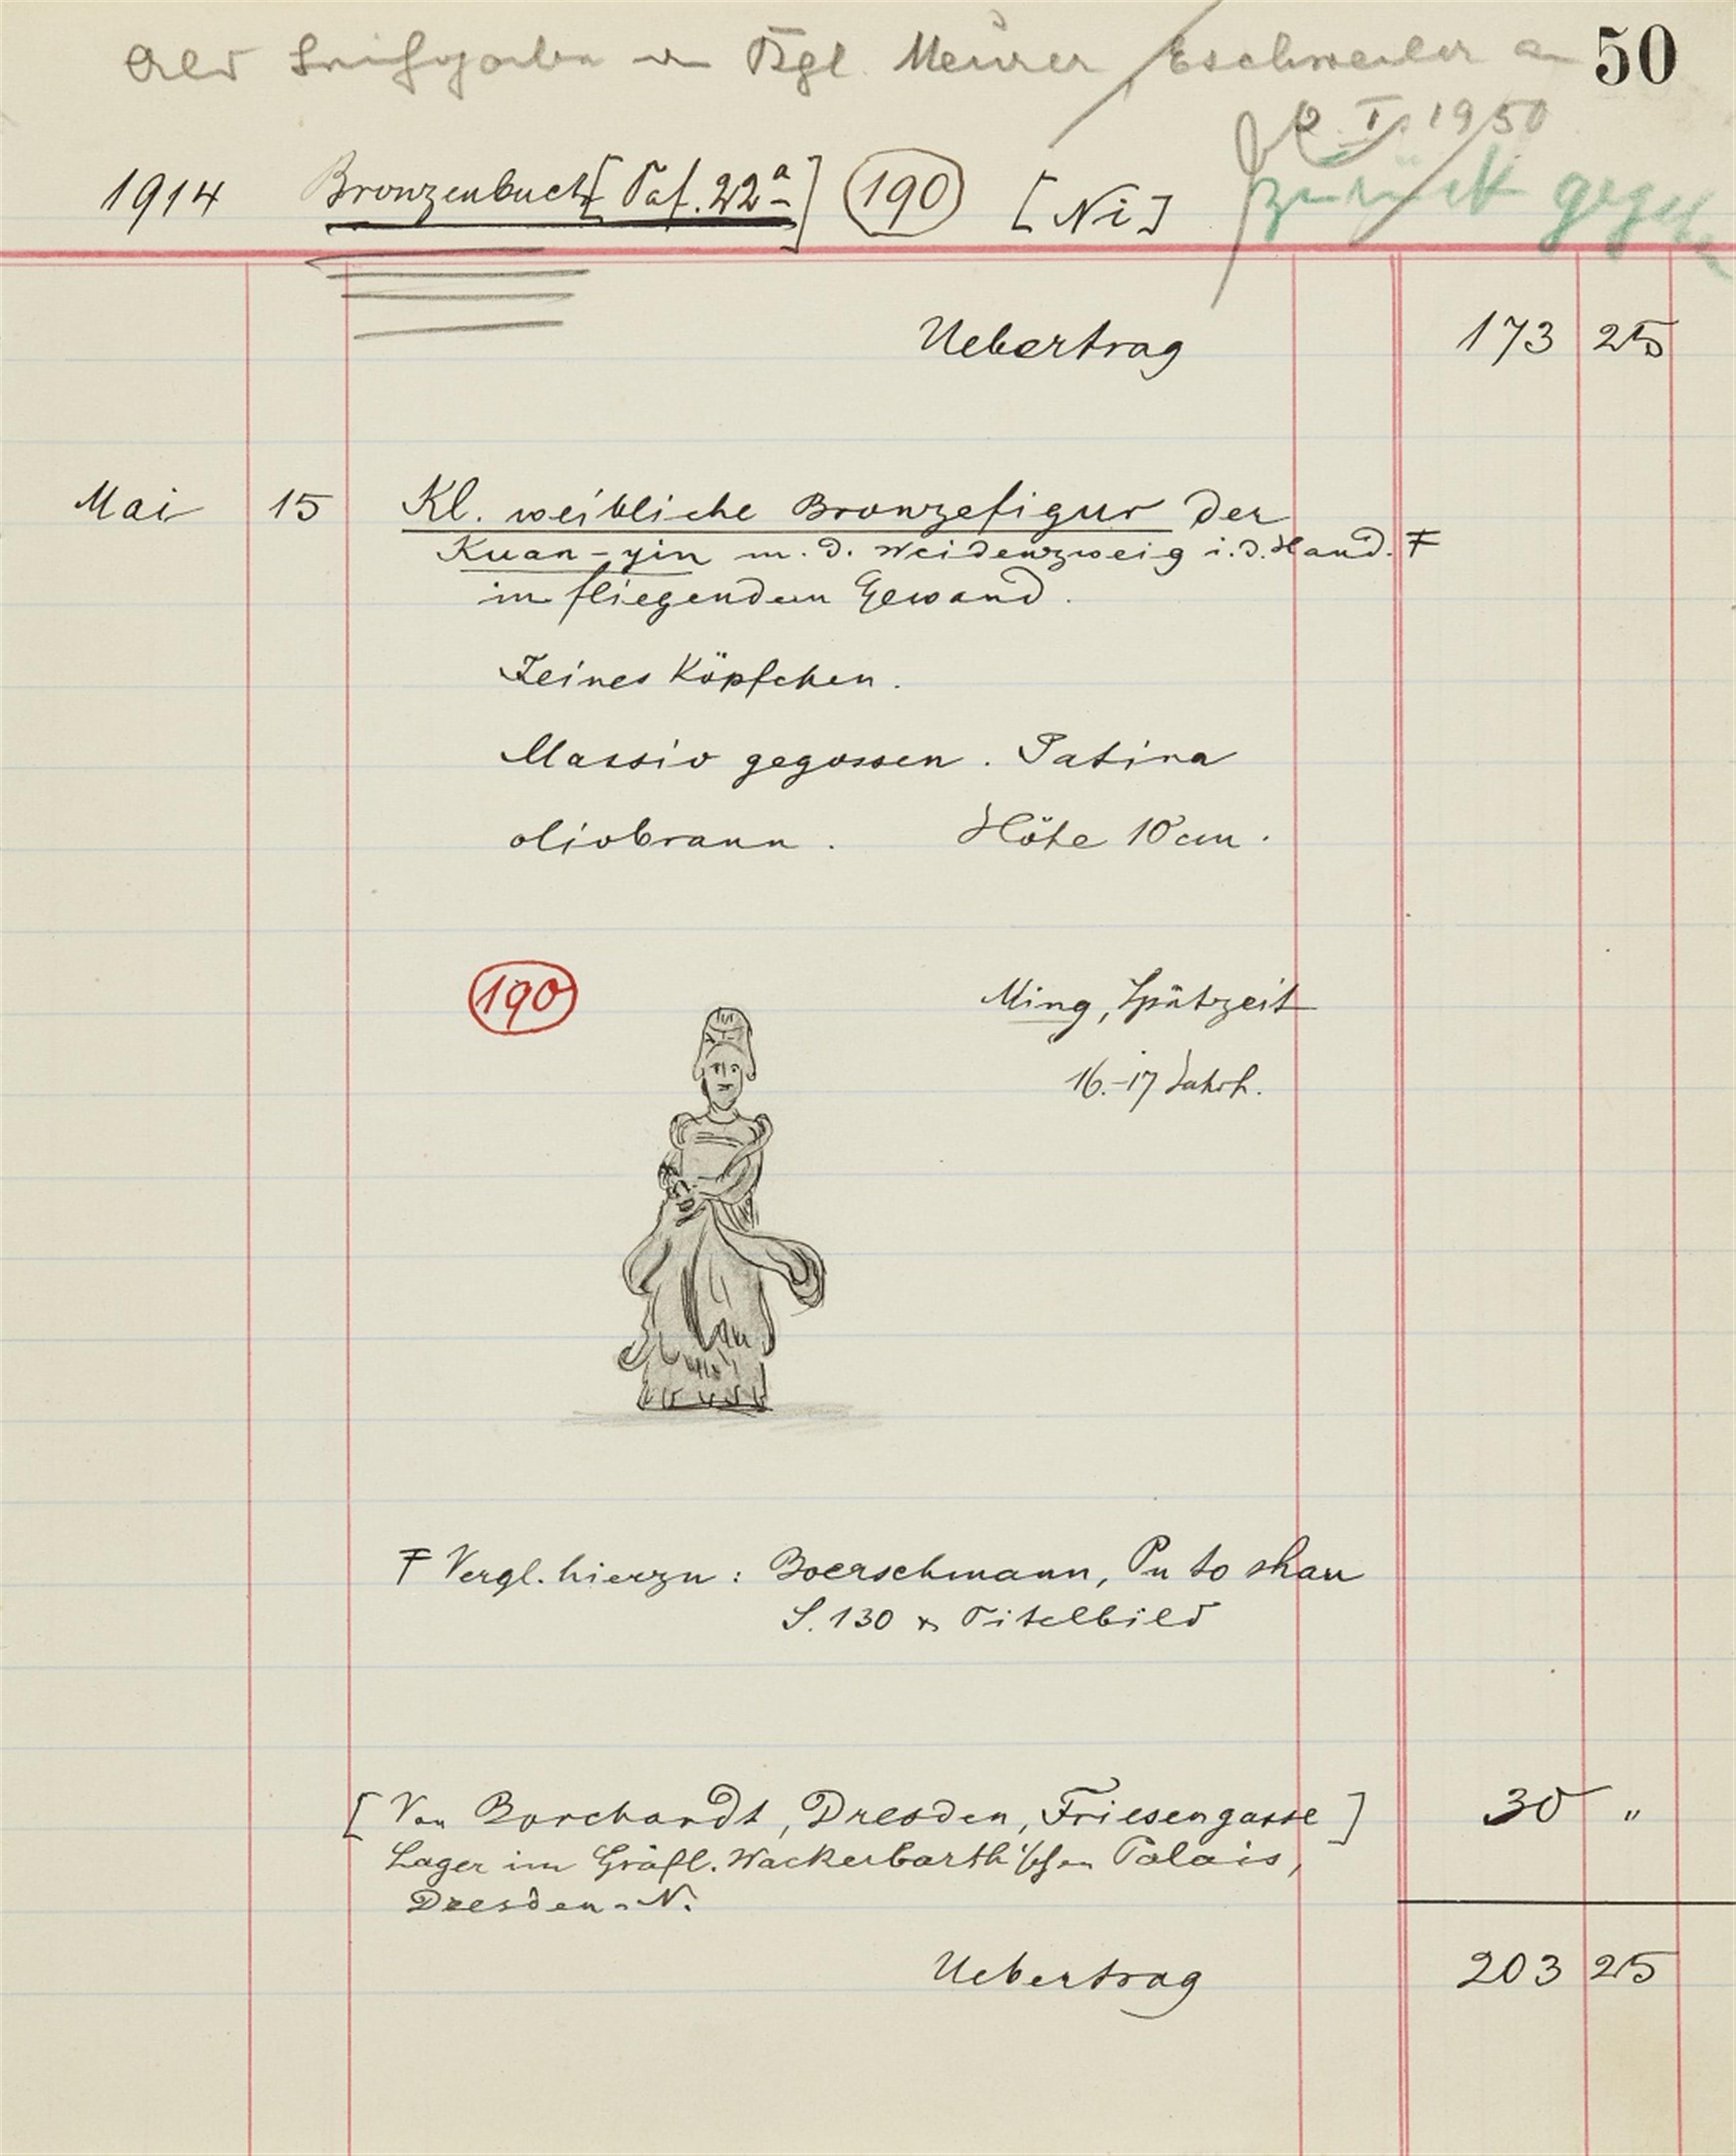 Als Leihgabe an Bgl. Meurer, Eschweiler 50
I. 1950
zurück gegeben
1914 Bronzenbuch [Taf. 22a] 190 [Ni]
Uebertrag 173 25
Mai 15 Kl. weibliche Bronzefigur der
Kuan-yin m. d. Weidenzweig i. d. Hand. Ŧ
in fliegendem Gewand.
Feines Köpfchen.
Massiv gegossen. Patina
olivbraun. Höhe 10 cm.
190
Ming, Spätzeit
16.-17 Jahrh.
Ŧ Vergl. hierzu: Boerschmann, Pu to shan
S. 130 & Titelbild
[Von Borchardt, Dresden, Friesengasse] 30 "
Lager im Gräfl. Wackerbarth'schen Palais,
Dresden-N.
Uebertrag 203 25